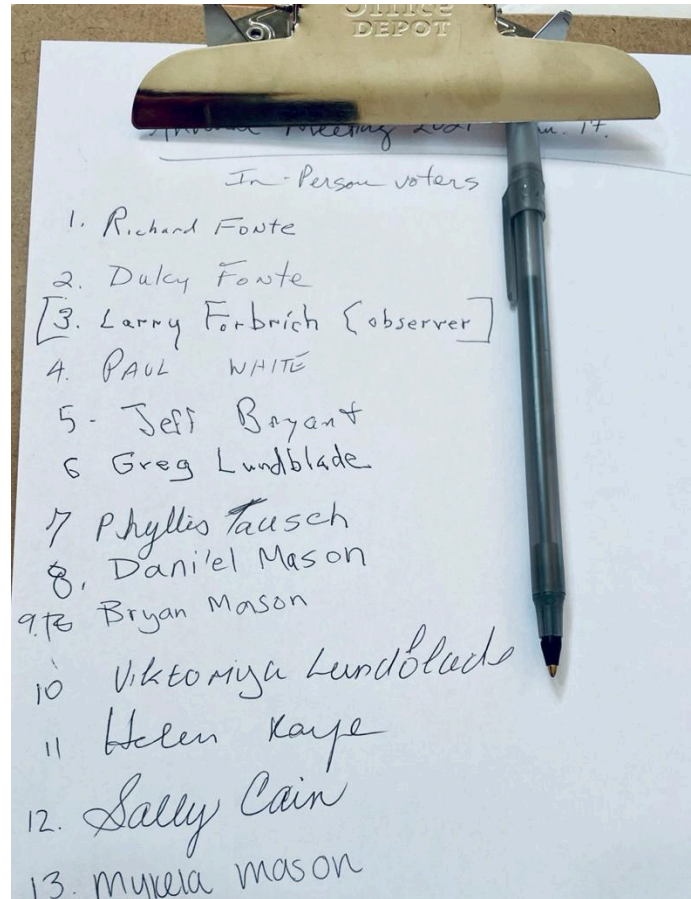 Office
DEPOT
Annual Meeting 2021 Jan. 17.
In-Person voters
1. Richard Fonte
2. Dulcy Fonte
[3. Larry Forbrich {observer]
4. PAUL WHITE
5- Jeff Bryant
6 Greg Lundblade
7 Phyllis Tausch
8. Daniel Mason
9. Bryan Mason
10 Viktoriya Lundblade
11 Helen Kaye
12. Sally Cain
13. Mykela mason